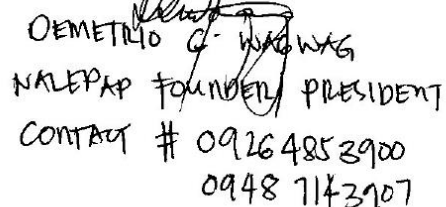 DEMETRIO C. WAGWAG
NALEPAP FOUNDER/ PRESIDENT
CONTACT # 09264853900
0948 7143907